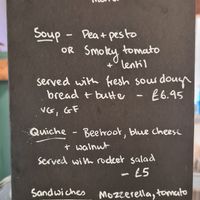 Soup - Pea + pesto
OR Smoky tomato
+ lentil
served with fresh sourdough
bread + butte - £6.95
VG, GF
Quiche - Beetroot, blue cheese
+ walnut
served with rocket salad
- £5
Sandwiches Mozzerella, tomato